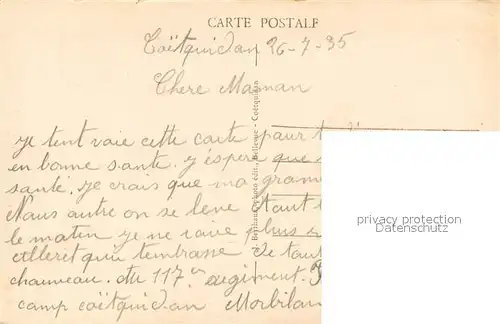 CARTE POSTALE
Coëtquidan 26-7-35
Chere Maman
je tent voie cette carte pour t
en bonne sante. y éspere que
santé. je crais que ma gram
Nous autre on se leve tant t
le matin je ne vaie plus
alleret qui tembrasse de tout
chauveau. du 117 regiment.
camp coëtquidan Morbihan
Bellevue - Coëtquidan
privacy protection
Datenschutz